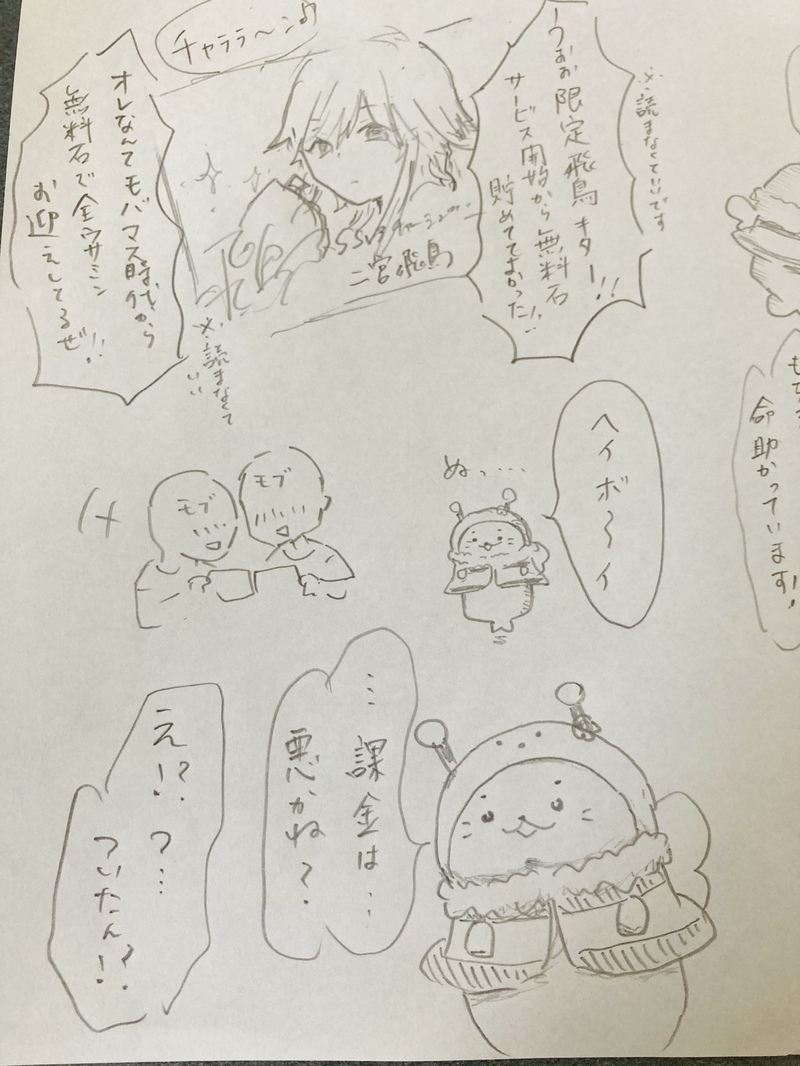 ※読まなくていいです
うおお限定飛鳥キター!!
サービス開始から無料石
貯めてておかった!!
チャララ〜ン♪
二宮飛鳥
オレなんてモバマス時代から
無料石で全ウサミン
お迎えしてるぜ!!
※読まなくて
いい
命助かっています!
ヘイボ〜イ
ぬっ…
モブ
モブ
…課金は…
悪かね?
え!?つ…
ついたん!?